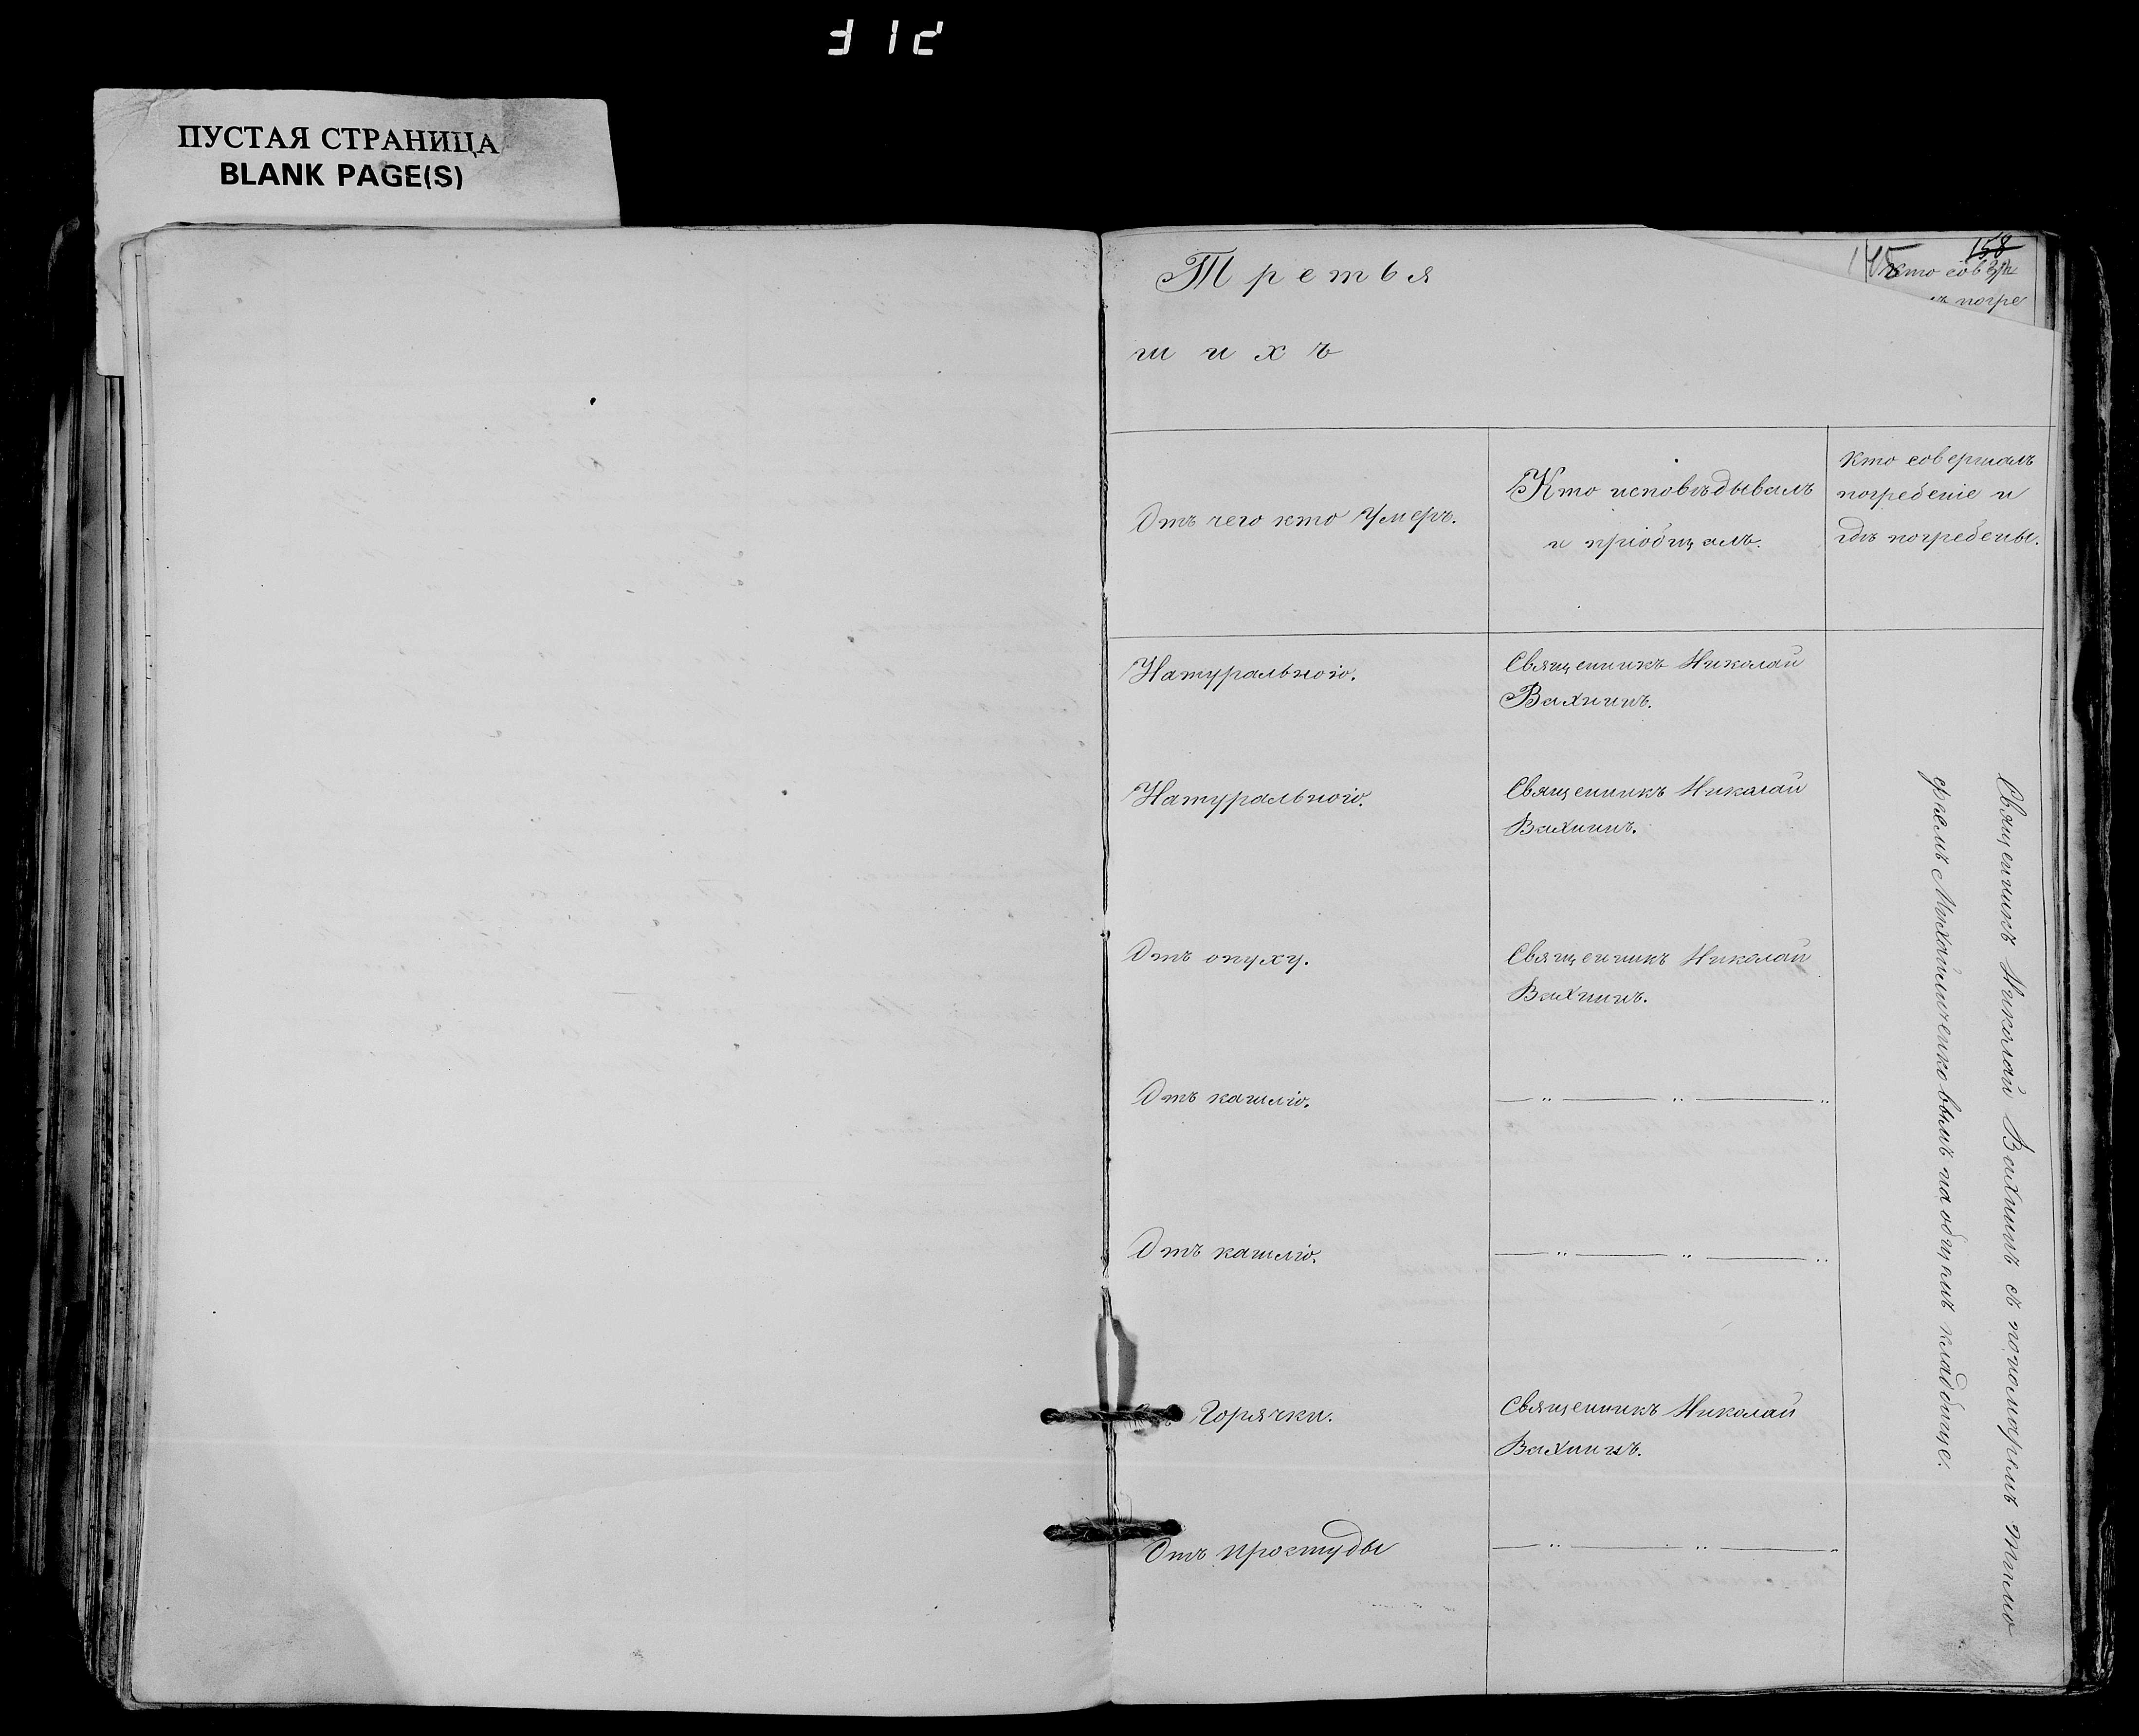 ПУСТАЯ СТРАНИЦА
BLANK PAGE(S)
158
145
Кто сов
погре
Третья
шихъ
Отъ чего кто умеръ.
Кто исповѣдывалъ
и пріобщалъ.
Кто совершалъ
погребеніе и
гдѣ погребены.
Натуральною.
Священникъ Николай
Вахнинъ.
Натуральною.
Священникъ Николай
Вахнинъ.
Отъ опуху.
Священникъ Николай
Вахнинъ.
Отъ кашлю.
— „ — „ — „
Отъ кашлю.
— „ — „ — „
Горячки.
Священникъ Николай
Вахнинъ.
Отъ простуды
— „ — „ — „
Священникъ Николай Вахнинъ съ пономаремъ Тимо
феемъ Михайличенковымъ на общемъ кладбище.